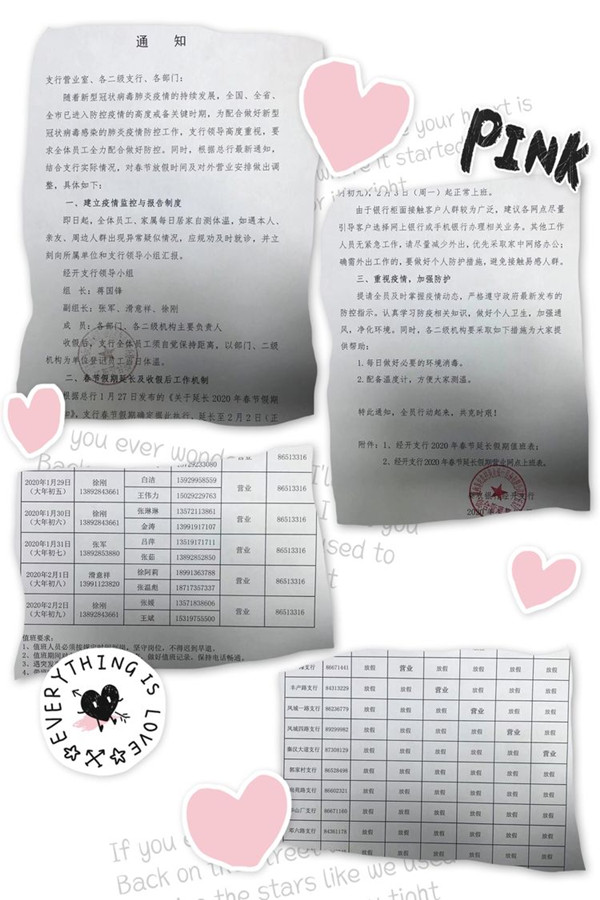 通 知
支行营业室、各二级支行、各部门:
随着新型冠状病毒肺炎疫情的持续发展,全国、全省、
全市已进入防控疫情的高度戒备关键时期,为配合做好新型
冠状病毒感染的肺炎疫情防控工作,支行领导高度重视,要
求全体员工全力配合做好防控。同时,根据总行最新通知,
结合支行实际情况,对春节放假时间及对外营业安排做出调
整,具体如下:
一、建立疫情监控与报告制度
即日起,全体员工、家属每日居家自测体温,如遇本人、
亲友、周边人群出现异常疑似情况,应规劝及时就诊,并立
刻向所属单位和支行领导小组汇报。
经开支行领导小组
组 长:蒋国锋
副组长:张军、滑意祥、徐刚
成 员:各部门、各二级机构主要负责人
收假后,支行全体员工须自觉保持距离,以部门、二级
机构为单位登记员工每日体温。
二、春节假期延长及收假后工作机制
根据总行1月27日发布的《关于延长2020年春节假期
》,支行春节假期确定据此执行,延长至2月2日(正
PINK
your heart is
it started
right
月初九),2月3日(周一)起正常上班。
由于银行柜面接触客户人群较为广泛,建议各网点尽量
引导客户选择网上银行或手机银行办理相关业务。其他工作
人员无紧急工作,请尽量减少外出,优先采取家中网络办公;
确需外出工作的,要做好个人防护措施,避免接触易感人群。
三、重视疫情,加强防护
提请全员及时掌握疫情动态,严格遵守政府最新发布的
防控指示。认真学习防疫相关知识,做好个人卫生,加强通
风,净化环境。同时,各二级机构要采取如下措施为大家提
供帮助:
1.每日做好必要的环境消毒。
2.配备温度计,方便大家测温。
特此通知,全员行动起来,共克时艰!
附件:1、经开支行2020年春节延长假期值班表;
2、经开支行2020年春节延长假期营业网点上班表。
you ever wonde
Back
I'll
I
you
used to
15129233080 86513316
2020年1月29日(大年初五) 徐刚 13892843661 白洁 15929958559 营业 86513316
王伟力 15029229763
2020年1月30日(大年初六) 徐刚 13892843661 张琳琳 13572113861 营业 86513316
金涛 13991912107
2020年1月31日(大年初七) 张军 13892853880 吕萍 13519171711 营业 86513316
张茹 13892852850
2020年2月1日(大年初八) 滑意祥 13991123820 徐阿莉 18991363788 营业 86513316
张温彪 18717357337
2020年2月2日(大年初九) 徐刚 13892843661 张媛 13571838606 营业 86513316
王斌 15319755500
值班要求:
1、值班人员必须按规定时间到岗,坚守岗位,不得迟到早退。
做好值班记录,保持电话畅通。
EVERYTHING IS LOVE
支行 86671441 放假 营业 放假 放假 放假 放假
丰产路支行 84313229 放假 放假 营业 放假 放假 放假
凤城一路支行 86236779 放假 放假 放假 营业 放假 放假
凤城四路支行 89299982 放假 放假 放假 放假 营业 放假
秦汉大道支行 87309129 放假 放假 放假 放假 放假 营业
郭家村支行 86528496 放假 放假 放假 放假 放假 放假
路支行 86602321 放假 放假 放假 放假 放假 放假
山厂支行 86671160 放假 放假 放假 放假 放假 放假
八路支行 84361178 放假 放假 放假 放假 放假 放假
If you
Back on
the stars like we used
tight